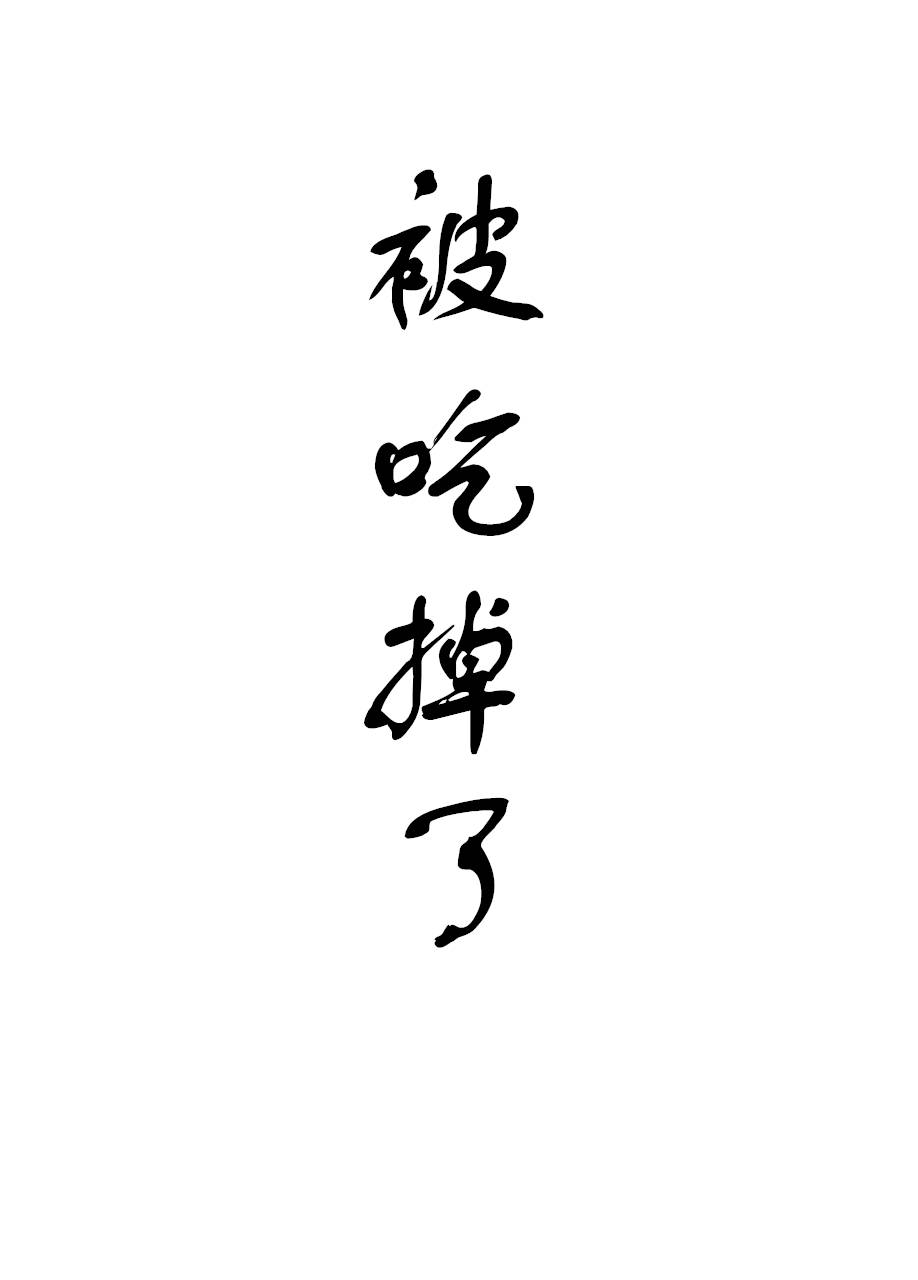 被吃掉了